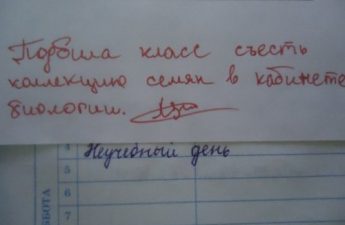 Подбила класс съесть
коллекцию семян в кабинете
биологии.
4 Неучебный день
5
6
7
БОТА